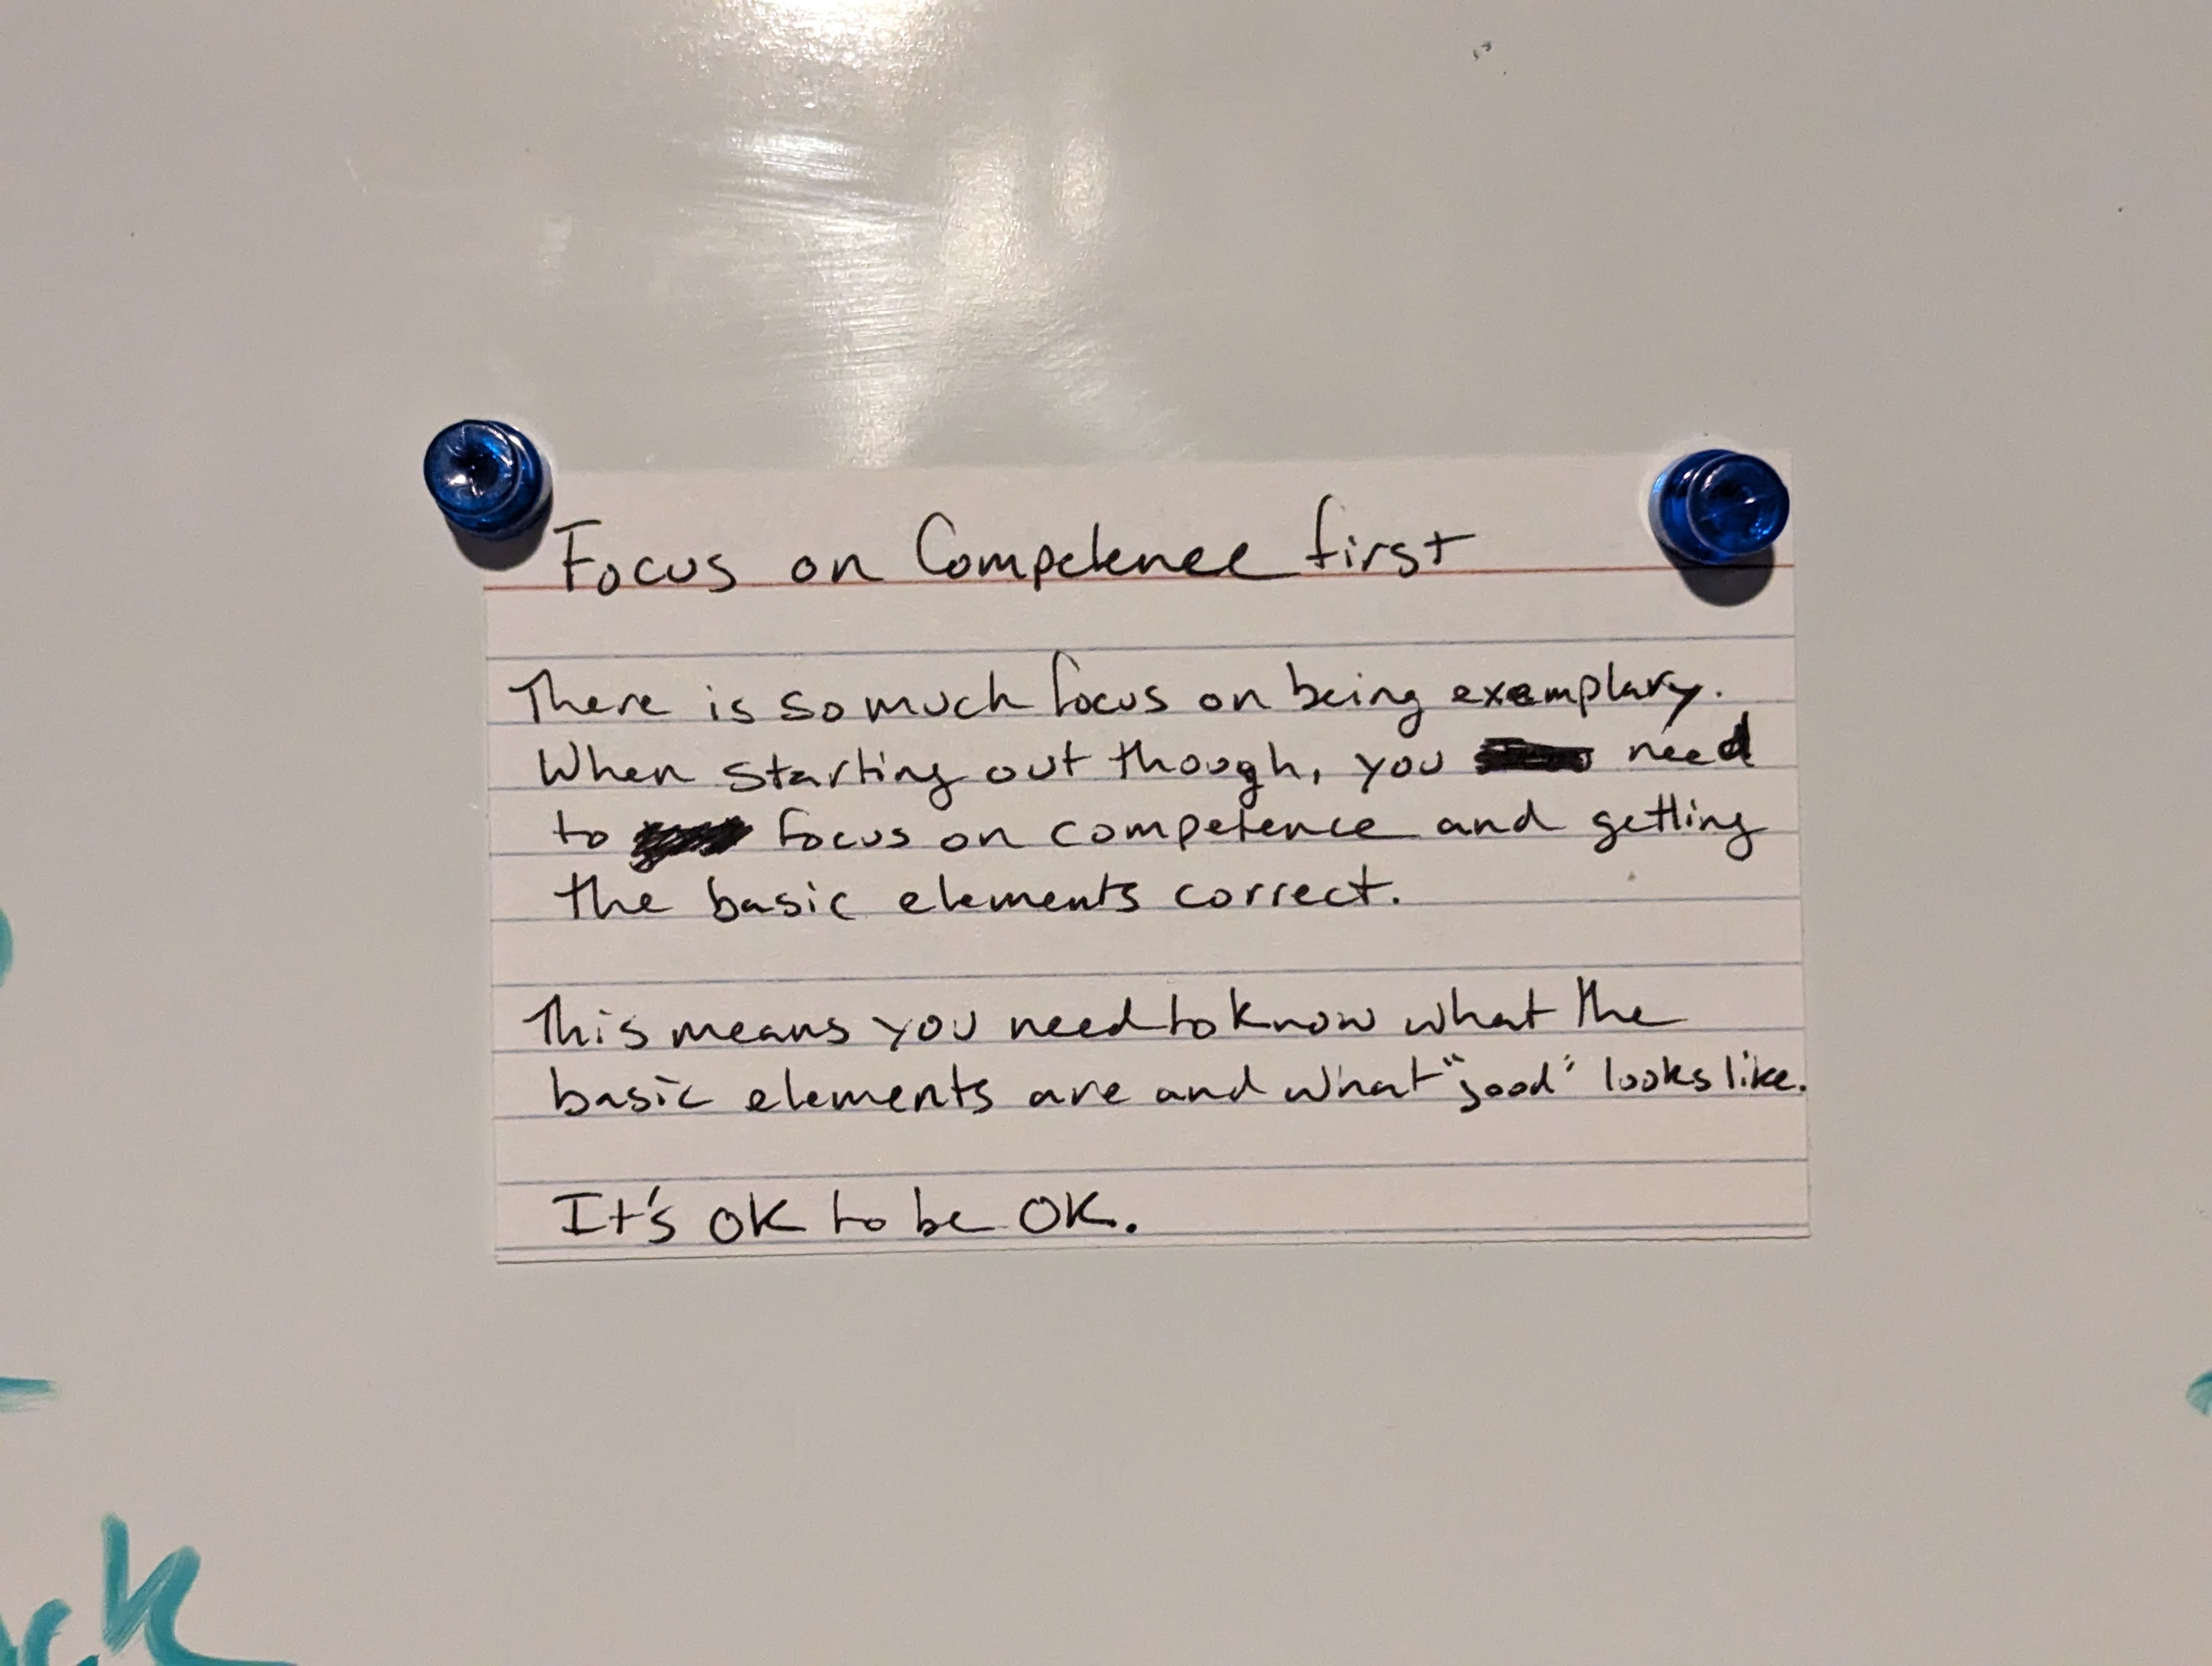 Focus on Competence first
There is so much focus on being exemplary.
When starting out though, you need
to focus on competence and getting
the basic elements correct.
This means you need to know what the
basic elements are and what "good" looks like.
It's OK to be OK.